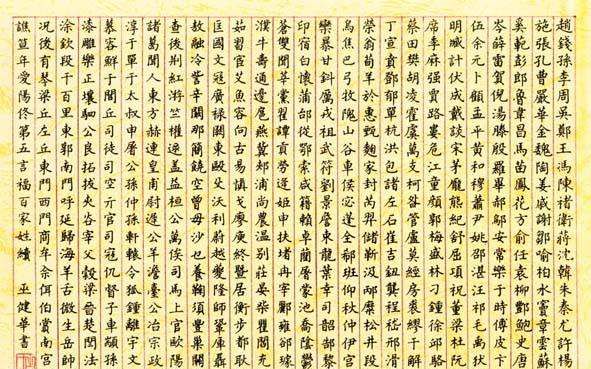 趙錢孫李周吳鄭王馮陳褚衛蔣沈韓朱秦尤許楊
施張孔曹嚴華金魏陶姜戚謝鄒喻柏水竇章雲蘇
奚範彭郎魯韋昌馬苗鳳花方俞任袁柳酆鮑史唐
岑薛雷賀倪湯滕殷羅畢郝鄔安常樂于時傅皮卞
伍余元卜顧孟平黄和穆蕭尹姚邵湛汪祁毛禹狄
明臧計伏成戴談宋茅龐熊紀舒屈項祝董梁杜阮
席季麻强賈路婁危江童顏郭梅盛林刁鍾徐邱駱
蔡田樊胡凌霍虞萬支柯昝管盧莫經房裘繆干解
丁宣賁鄧郁單杭洪包諸左石崔吉鈕龔程嵇邢滑
榮翁荀羊於惠甄麴家封芮羿儲靳汲邴糜松井段
烏焦巴弓牧隗山谷車侯宓蓬全郗班仰秋仲伊宮
欒暴甘鈄厲戎祖武符劉景詹束龍葉幸司韶郜黎
印宿白懷蒲邰從鄂索咸籍賴卓藺屠蒙池喬陰鬱
蒼雙聞莘黨翟譚貢勞逄姬申扶堵冉宰酈雍郤璩
濮牛壽通邊扈燕冀郟浦尚農温别莊晏柴瞿閻充
茹習宦艾魚容向古易慎戈廖庾終暨居衡步都耿
匡國文寇廣禄闕東歐殳沃利蔚越夔隆師鞏厙聶
敖融冷訾辛闞那簡饒空曾毋沙乜養鞠須豐巢關
查後荆紅游竺權逯蓋益桓公万俟司馬上官歐陽
諸葛聞人東方赫連皇甫尉遲公羊澹臺公冶宗政
淳于單于太叔申屠公孫仲孫軒轅令狐鍾離宇文
慕容鮮于閭丘司徒司空亓官司寇仉督子車顓孫
漆雕樂正壤駟公良拓拔夾谷宰父穀梁晉楚閆法
涂欽段干百里東郭南門呼延歸海羊舌微生岳帥
況後有琴梁丘左丘東門西門商牟佘佴伯賞南宮
譙笪年愛陽佟第五言福百家姓續 巫健華書